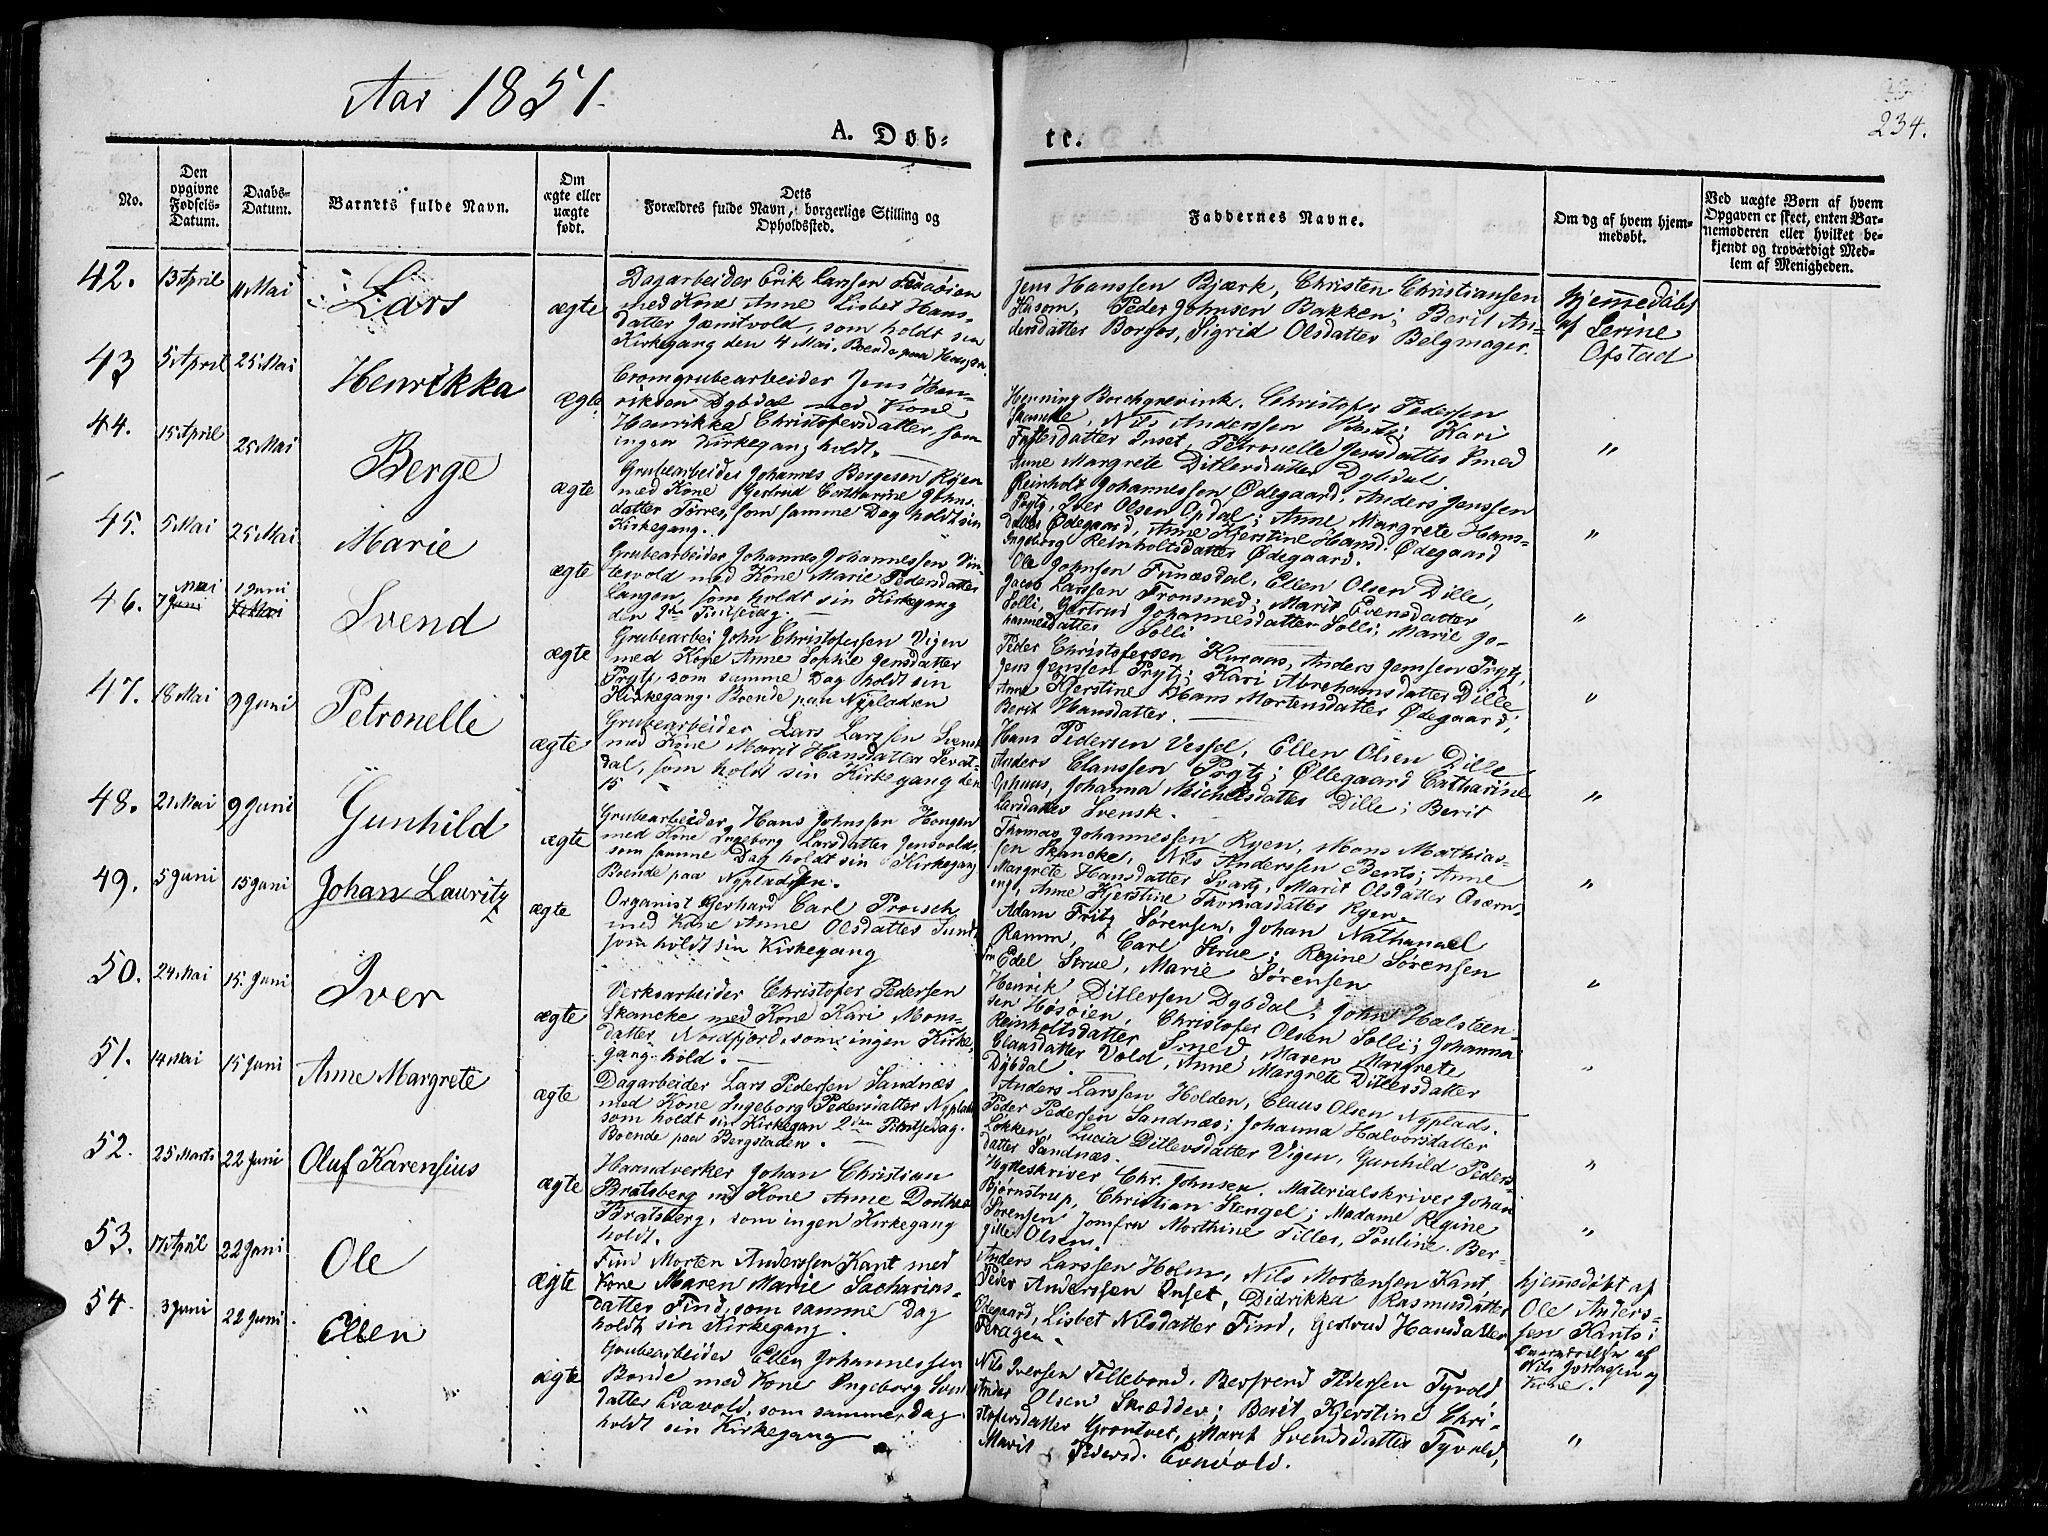 Aar 1851.
234.
A. Døb-
te.
No.
Den opgivne Fødsels-Datum.
Daabs-Datum.
Barnets fulde Navn.
Om ægte eller uægte født.
Dets Forældres fulde Navn, borgerlige Stilling og Opholdssted.
Faddernes Navne.
Om og af hvem hjemmedøbt.
Ved uægte Børn af hvem Opgaven er skeet, enten Barnemoderen eller hvilket bekjendt og troværdigt Medlem af Menigheden.
42. 13 April 11 Mai Lars ægte
Dagarbeider Erik Larssen
med Kone Anne Lisbet Hans-
datter Jensvold, som holdt sin
Kirkegang den 4 Mai. Boende paa
Jens Hanssen Bjærk, Christen Christiansen
Peder Johnsen Bakken; Berit An-
dersdatter Borgos, Sigrid Olsdatter Belgmager.
hjemmedøbt
af Serine
Ofstad
43 5 April 25 Mai Henrikka ægte
Cromgrubearbeider Jens Hen-
riksen Dybdal med Kone
Henrikka Christofersdatter, som
ingen Kirkegang holdt.
Henning Borchgrevink. Christofer Pedersen
Skancke, Nils Anderssen Kari
datter Inset, Petronelle Jensdatter Smed
Anne Margrete Ditlevsdatter Dybdal.
"
44. 15 April 25 Mai Berge ægte
Grubearbeider Johannes Bergesen Ryen
med Kone Gertrud Catharine Johns-
datter Torres, som samme Dag holdt sin
Kirkegang.
Reinholt Johannessen Ødegaard, Anders Jenssen
Prytz, Iver Olsen Opdal; Anne Margrete Hans-
datter Ødegaard, Anne Kjerstine Hansd. Ødegaard
Ingeborg Reinholtsdatter Ødegaard.
"
45. 5 Mai 25 Mai Marie ægte
Grubearbeider Johannes Johannessen
med Kone Marie Pedersdatter
Langen, som holdt sin Kirkegang
den 2den Pintsedag.
Ole Johnsen Funæsdal, Ellen Olsen Dille,
Jacob Larssen Tronsmed; Marit Evensdatter
Solli, Gertrud Johannesdatter Solli; Marie Jo-
hannesdatter Solli.
"
46. 7 Mai 1 Juni Svend ægte
Grubearbei John Christofersen Vigen
med Kone Anne Sophie Jensdatter
Prytz, som samme Dag holdt sin
Kirkegang. Boende paa Nypladsen
Peder Christofersen Kuraas, Anders Jenssen Prytz,
Jens Jenssen Prytz; Kari Abrehamsdatter Dille
Anne Kjerstine Hans Mortensdatter Ødegaard;
Berit Hansdatter.
"
47. 18 Mai 9 Juni Petronelle ægte
Grubearbeider Lars Larssen Svensk
med Kone Marit Hansdatter
dal, som holdt sin Kirkegang den
15
Hans Pedersen Vessel, Ellen Olsen Dille
Anders Clanssen Prytz; Øllegaard Catharine
Ophuus, Johanna Michelsdatter Dille; Berit
Larsdatter Svensk.
"
48. 21 Mai 9 Juni Gunhild ægte
Grubearbeider Hans Johnsen Hongen
med Kone Ingeborg Larsdatter Jensvold,
som samme Dag holdt sin Kirkegang
Boende paa Nypladsen.
Thomas Johannessen Ryen, Mons Mathias-
sen Skancke, Nils Anderssen Bents; Anne
Margrete Hansdatter Svartz, Marit Olsdatter Qværn-
eng, Anne Kjerstine Thomasdatter Ryen.
"
49. 5 Juni 15 Juni Johan Lauritz ægte
Organist Gerhard Carl Proisch
med Kone Anne Olsdatter Sund
som holdt sin Kirkegang
Adam Fritz Sørensen, Johan Nathanael
Ramm, Carl Strue; Regine Sørensen
Edel Strue, Marie Sørensen
"
50. 24 Mai 15. Juni Iver ægte
Verksarbeider Christofer Pedersen
Skancke med Kone Kari Mons-
datter Nordfjord, som ingen Kirke-
gang hold.
Henrik Ditlevsen Dybdal, John Halsteen-
sen Høsøien, Christofer Olsen Solli; Johanna
Reinholtsdatter Smed, Maren Margrete
Claasdatter Vold, Anne Margrete Ditlevsdatter
Dybdal.
"
51. 14 Mai 15 Juni Anne Margrete ægte
Dagarbeider Lars Pedersen Sandnæs
med Kone Ingeborg Pedersdatter Nyplads
som holdt sin Kirkegan 2den Pintsedag.
Boende paa Bergstaden.
Anders Larssen Holden, Claus Olsen Nyplads.
Peder Pedersen Sandnæs; Johanna Halvorsdatter
Løkken, Lucia Ditlevsdatter Vigen, Gunhild Peders-
datter Sandnæs.
"
52. 25 Marts 22 Juni Oluf Karensius ægte
Haandverker Johan Christian
Bratsberg md Kone Anne Dorthea
Bratsberg, som ingen Kirkegang
holdt.
Hytteskriver Chr. Johnsen. Materialskriver Johan
Bjørnstrup, Christian Stengel; Madame Regine
Sørensen Jomfru Morthine Tilles, Pauline Ber-
gitte Olsen.
"
53. 17 April 22 Juni Ole ægte
Find Morten Anderssen Kant med
Kone Maren Marie Sacharias-
datter Find, som samme Dag
holdt sin Kirkegang.
Anders Larssen Holm, Nils Mortensen Kant,
Peder Anderssen Inset, Didrikka Rasmusdatter
Ødegaard, Lisbet Nilsdatter Find, Gertrud Hansdatter
Feragen.
hjemmedøbt af
Ole Anders-
sen Kants i
Overværelse af
Nils og
Kone.
54. 3 Juni 22 Juni. Ellen ægte
Grubearbeider Ellen Johannessen
Bonde med Kone Ingeborg Svens-
datter som samme Dag
holdt sin Kirkegang
Nils Iversen Tollebond. Bersvend Pedersen Tyvold
Ander Olsen Skrædder; Berit Kjerstine Chri-
stofersdatter Grøntvet, Marit Svendsdatter Tyvold,
Marit Pedersd.
"